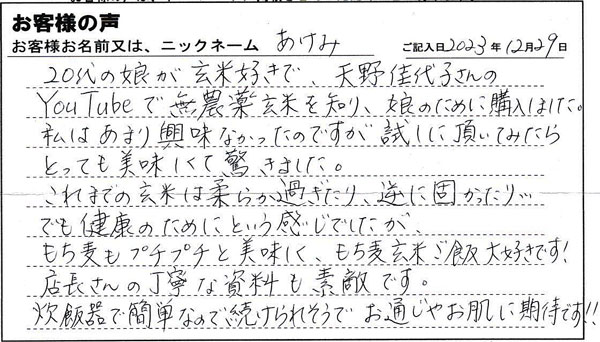 お客様の声
お客様お名前又は、ニックネーム あけみ ご記入日2023年12月29日
20代の娘が玄米好きで、天野佳代子さんの
YouTubeで無農薬玄米を知り、娘のために購入しました。
私はあまり興味なかったのですが試しに頂いてみたら
とっても美味しくて驚きました。
これまでの玄米は柔らか過ぎたり、逆に固かったり…
でも健康のためにという感じでしたが、
もち麦もプチプチと美味しく、もち麦玄米ご飯大好きです!
店長さんの丁寧な資料も素敵です。
炊飯器で簡単なので続けられそうでお通じやお肌に期待です!!